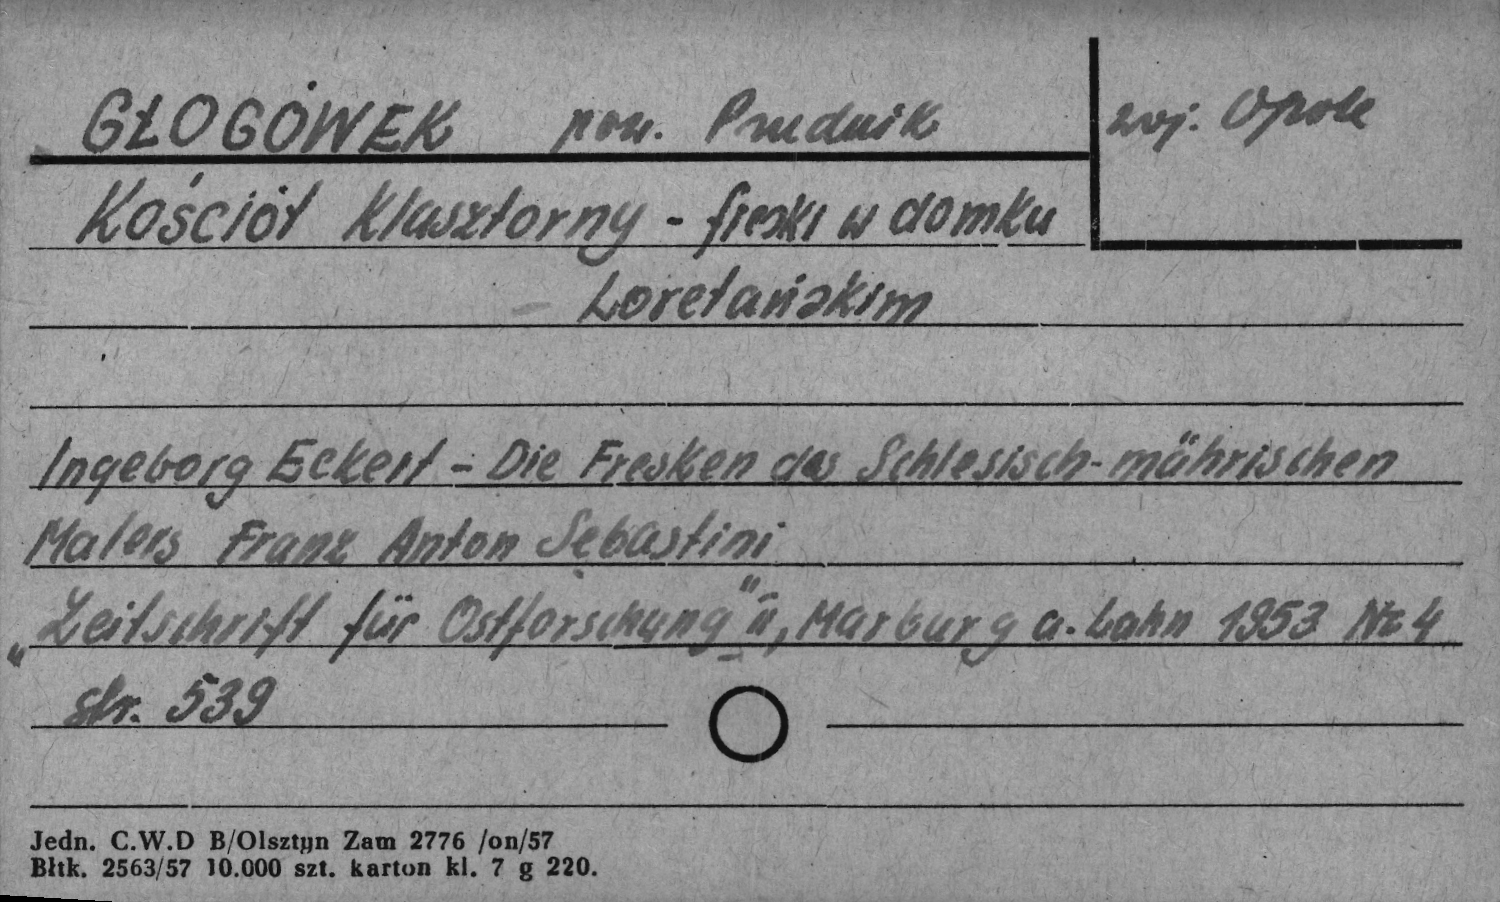 GŁOGÓWEK pow. Prudnik woj. Opole
Kościół Klasztorny - freski w domku
Loretańskim
Ingeborg Eckert - Die Fresken des Schlesisch-mährischen
Malers Franz Anton Sebastini
„Zeitschrift für Ostforschung", Marburg a. Lahn 1953 Nr 4
str. 539
Jedn. C.W.D B/Olsztyn Zam 2776 /on/57
Błtk. 2563/57 10.000 szt. karton kl. 7 g 220.